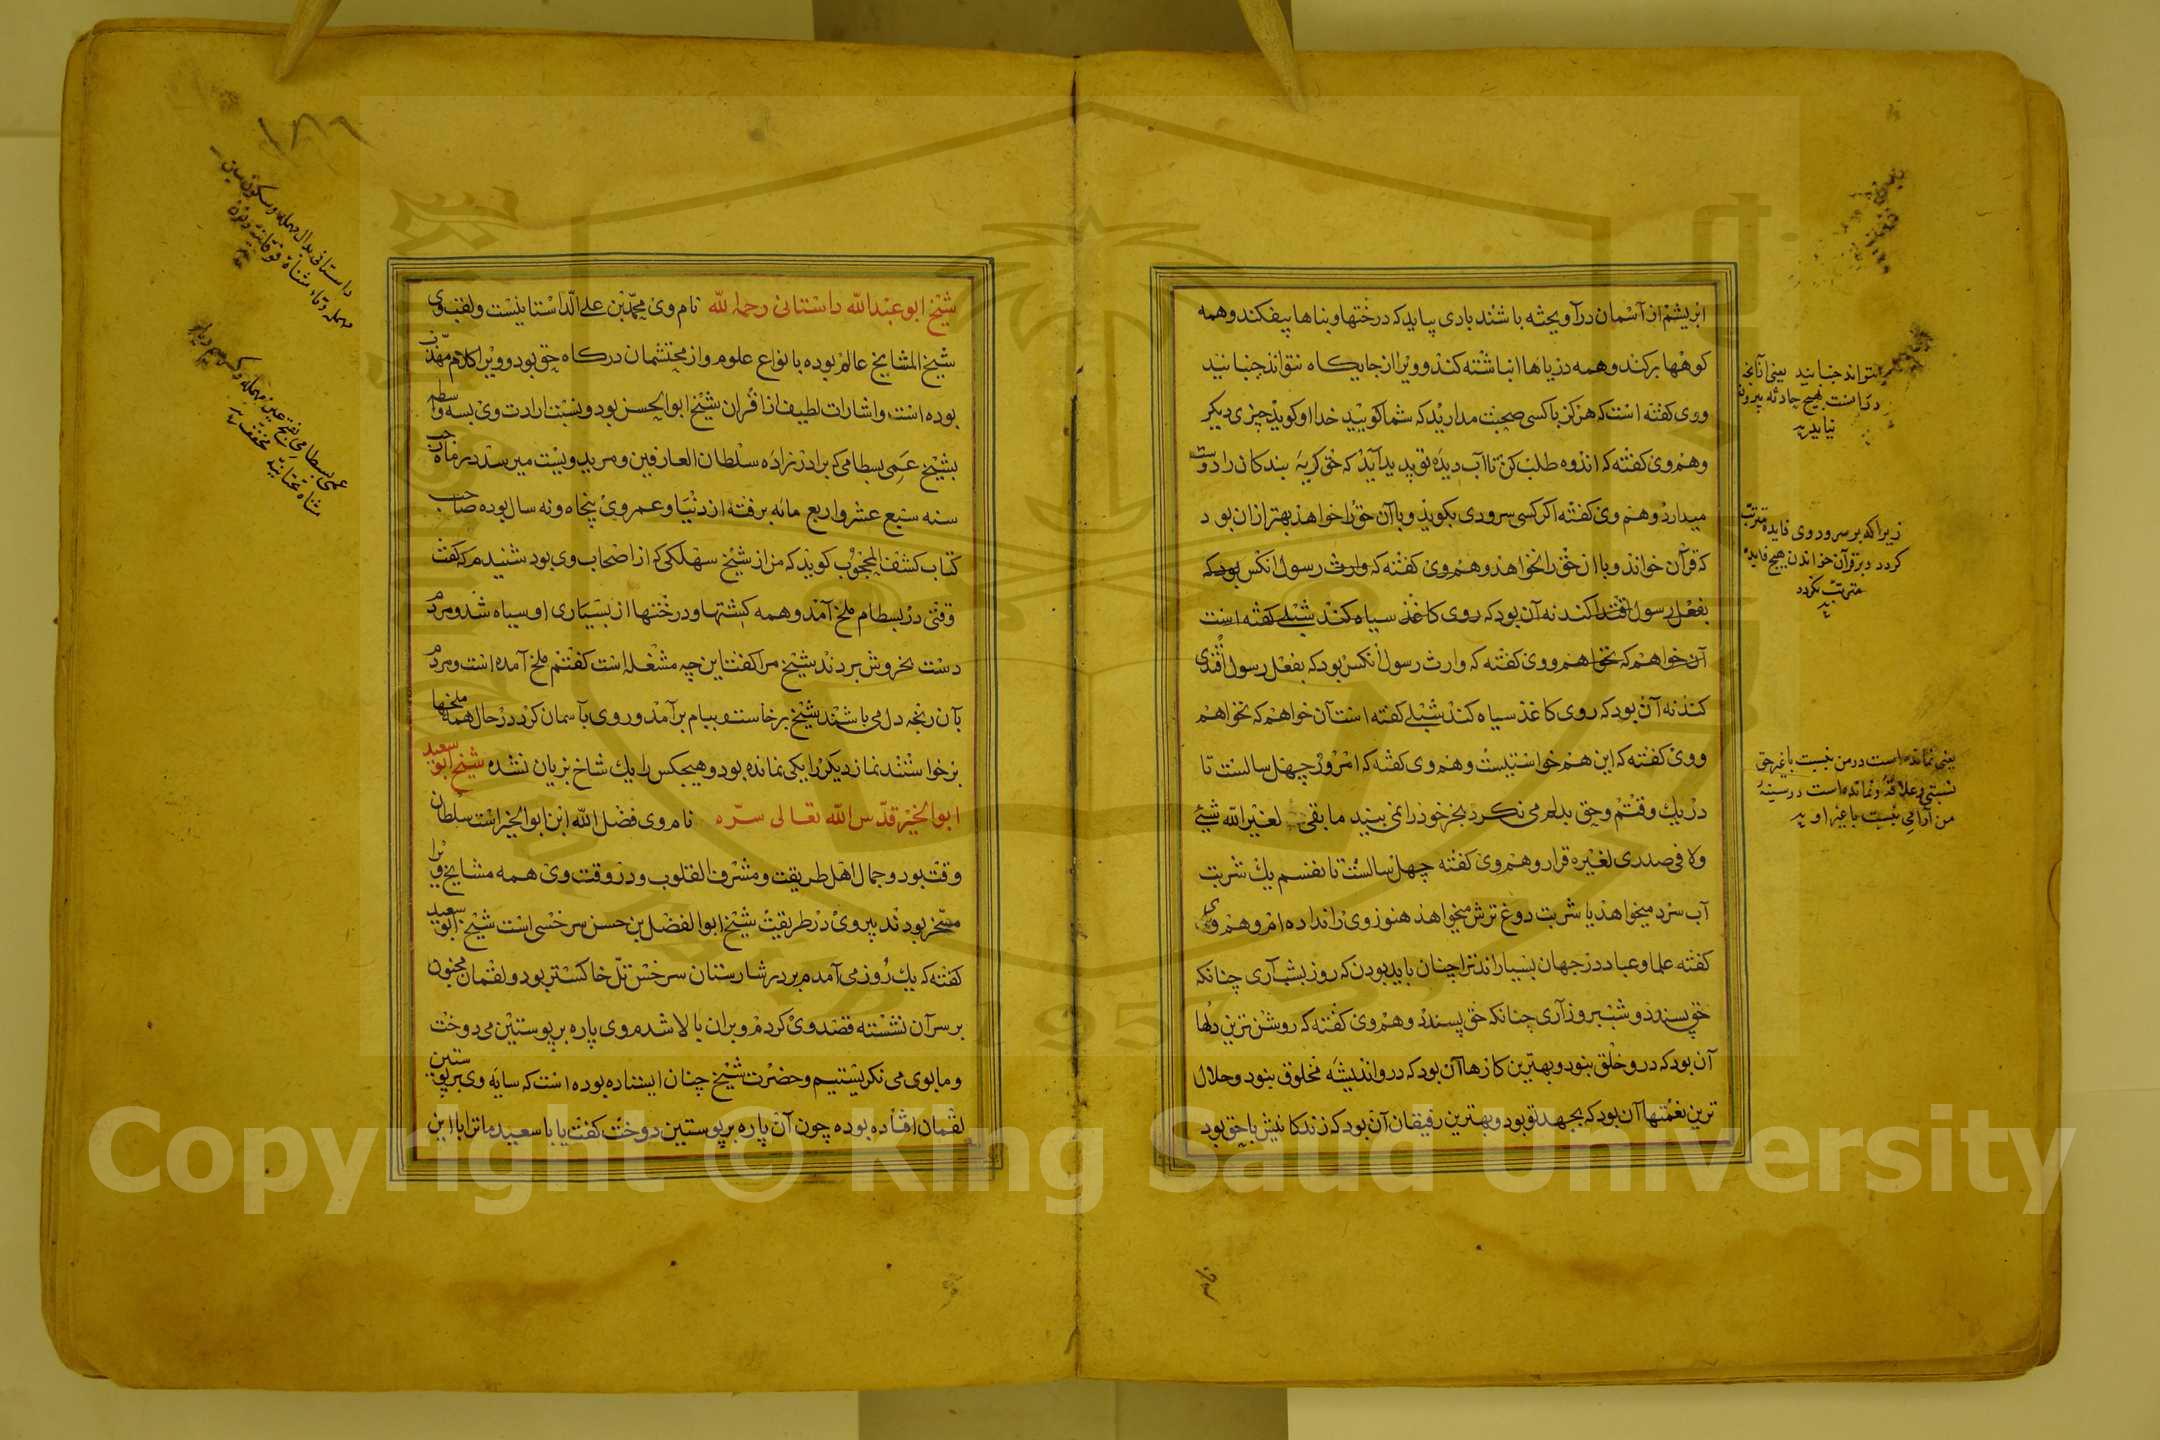 ابریشم از آسمان درآویخته باشند بادی بیاید که درختها و بناها بیفکند و همه
کوهها برکند و همه دریاها انباشته کند و ویرا از جایگاه نتواند جنبانید
و وی گفته است که هرگز با کسی صحبت مدارید که شما گویید خدا او گوید چیزی دیگر
و هم وی گفته که اندوه طلب کن تا آب دیده تو پدید آید که حق گریه بندکان را دوست
میدارد و هم وی گفته اگر کسی سرودی بگوید و با آن حق را خواهد بهتر از ان بود
که قرآن خواند و با ان حق را نخواهد و هم وی گفته که وارث رسول انکس بود که
بفعل رسول اقتدا کند نه آن بود که روی کاغذ سیاه کند شبلی گفته است
آن خواهم که نخواهم و وی گفته که وارث رسول انکس بود که بفعل رسول اقتدی
کند نه آن بود که روی کاغذ سیاه کند شبلی گفته است آن خواهم که نخواهم
و وی گفته که این هم خواستیست و هم وی گفته که امروز چهل سالست تا
در یك وقتم و حق بدلم می نگرد بجز خود را نمی بیند ما بقی لغیر الله شیئ
ولا فی صدری لغیره قرار و هم وی گفته چهل سالست تا نفسم یك شربت
آب سرد میخواهد یا شربت دوغ ترش میخواهد هنوز وی را نداده ام و هم وی
گفته علما و عباد در جهان بسیاراند ترا چنان باید بودن که روز بشب آری چنانکه
حق پسندد و شب بروز آری چنانکه حق پسندد و هم وی گفته که روشن ترین دلها
آن بود که درو خلق نبود و بهترین کارها آن بود که درو اندیشه مخلوق نبود و حلال
ترین نعمتها آن بود که بجهد تو بود و بهترین رفیقان آن بود که زندکانیش با حق بود
نتواند جنبانید یعنی آنانچه
در راست بهیچ حادثه بیرون
نیاید
زیرا که بر سرود وی فایده مترتب
گردد و بر قرآن خواندن هیچ فایده
مترتب نگردد
یعنی نمانده است در من نسبت با غیر حق
نسبتی و علاقه و نمانده است در سینه
من آرامی نسبت با غیر او
شیخ ابو عبد الله داستانی رحمه الله نام وی محمد بن علی الداستانیست و لقب وی
شیخ المشایخ عالم بوده بانواع علوم و از محتشمان درکاه حق بود و ویرا کلام مهذب
بوده است و اشارات لطیف از اقران شیخ ابو الحسن بود و نسبت ارادت وی بسه واسطه
بشیخ عمی بسطامی که برادر زاده سلطان العارفین و مرید ویست میرسد در ماه رجب
سنه سبع عشر و اربع مائه برفته از دنیا و عمر وی پنجاه و نه سال بوده صاحب
کتاب کشف المحجوب گوید که من از شیخ سهلکی که از اصحاب وی بود شنیدم که گفت
وقتی در بسطام ملخ آمد و همه کشتها و درختها از بسیاری او سیاه شد و مردم
دست بخروش بردند شیخ مرا گفت این چه مشغله است گفتم ملخ آمده است و مردم
بآن رنجه دل می باشند شیخ برخاست و ببام برآمد و روی بآسمان کرد در حال همه ملخها
برخواستند نماز دیگر را یکی نمانده بود و هیچکس را یك شاخ بزیان نشده شیخ ابو سعید
ابو الخیر قدس الله تعالی سره نام وی فضل الله ابن ابو الخیر است سلطان
وقت بود و جمال اهل طریقت و مشرف القلوب و در وقت وی همه مشایخ ویرا
مسخر بودند پیر وی در طریقت شیخ ابو الفضل بن حسن سرخسی است شیخ ابو سعید
گفته که یك روز می آمدم بر در شارستان سرخس تل خاکستر بود و لقمان مجنون
بر سر آن نشسته قصد وی کردم و بران بالا شدم وی پاره بر پوستین می دوخت
و ما بوی می نگریستیم و حضرت شیخ چنان ایستاده بوده است که سایه وی بر پوستین
لقمان افتاده بوده چون آن پاره بر پوستین دوخت گفت یا با سعید ما ترا با این
داستانی بدال مهمله و سکون سین
مهمله و تاء مثناة فوقانیه و نون
عمی بسطامی بفتح عین مهمله و کسر میم و یاء
مثناة تحتانیه مخففه
Copyright © King Saud University